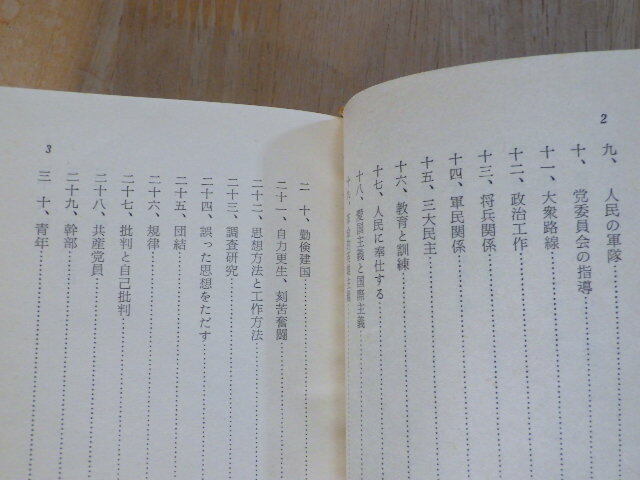 2
九、人民の軍隊
十、党委員会の指導
十一、大衆路線
十二、政治工作
十三、将兵関係
十四、軍民関係
十五、三大民主
十六、教育と訓練
十七、人民に奉仕する
十八、愛国主義と国際主義
十九、
二十、勤倹建国
二十一、自力更生、刻苦奮闘
二十二、思想方法と工作方法
二十三、調査研究
二十四、誤った思想をただす
二十五、団結
二十六、規律
二十七、批判と自己批判
二十八、共産党員
二十九、幹部
三十、青年
3